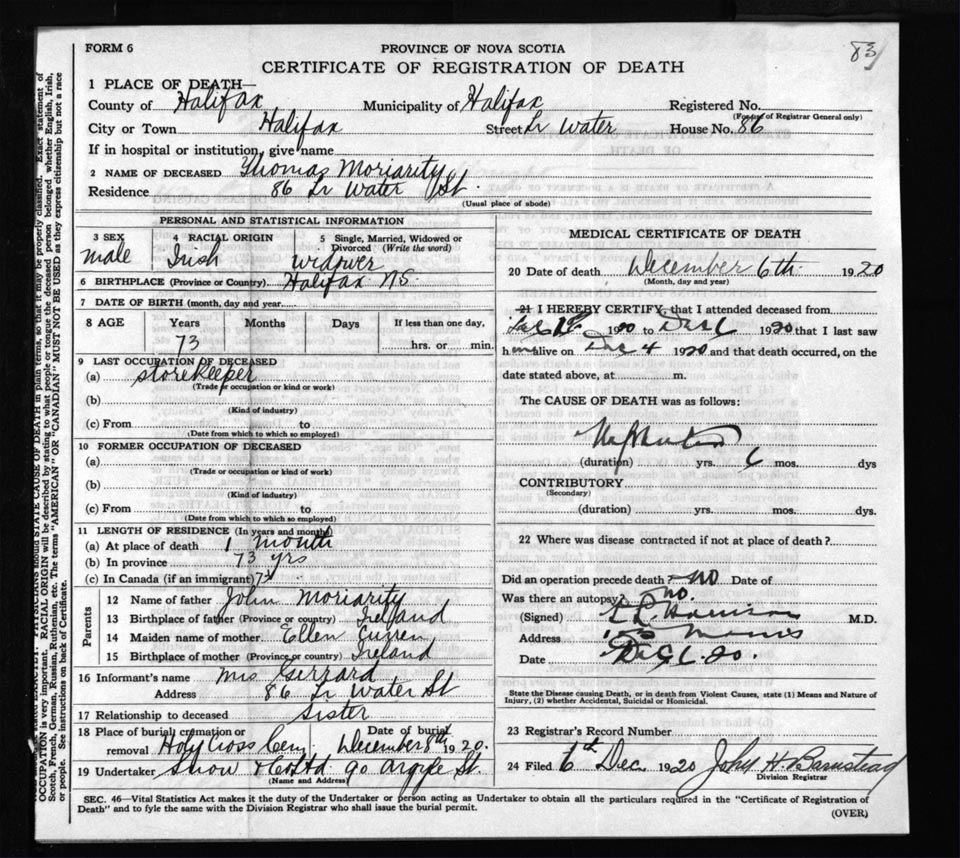 FORM 6
PROVINCE OF NOVA SCOTIA
83
CERTIFICATE OF REGISTRATION OF DEATH
1 PLACE OF DEATH—
County of Halifax Municipality of Halifax Registered No.
(For use of Registrar General only)
City or Town Halifax Street Lr Water House No. 86
If in hospital or institution, give name
2 NAME OF DECEASED Thomas Moriarity
Residence 86 Lr Water St.
(Usual place of abode)
PERSONAL AND STATISTICAL INFORMATION
3 SEX male
4 RACIAL ORIGIN Irish
5 Single, Married, Widowed or Divorced (Write the word) widower
6 BIRTHPLACE (Province or Country) Halifax NS.
7 DATE OF BIRTH (month, day and year
8 AGE Years Months Days If less than one day,
73 hrs. or min.
9 LAST OCCUPATION OF DECEASED
(a) storekeeper
(Trade or occupation or kind or work)
(b)
(Kind of industry)
(c) From to
(Date from which to which so employed)
10 FORMER OCCUPATION OF DECEASED
(a)
(Trade or occupation or kind of work)
(b)
(Kind of industry)
(c) From to
(Date from which to which so employed)
11 LENGTH OF RESIDENCE (In years and months)
(a) At place of death 1 month
(b) In province 73 yrs
(c) In Canada (if an immigrant)
Parents
12 Name of father John Moriarity
13 Birthplace of father (Province or country) Ireland
14 Maiden name of mother Ellen Curren
15 Birthplace of mother (Province or country) Ireland
16 Informant's name Mrs Gerrard
Address 86 Lr Water St
17 Relationship to deceased sister
18 Place of burial, cremation or Date of burial
removal Holy Cross Cem December 8th 1920.
19 Undertaker Snow & Co Ltd 90 Argyle St.
(Name and Address)
MEDICAL CERTIFICATE OF DEATH
20 Date of death December 6th. 1920
(Month, day and year)
21 I HEREBY CERTIFY, that I attended deceased from
1920 to Dec 6 1920 that I last saw
him alive on Dec 4 1920 and that death occurred, on the
date stated above, at m.
The CAUSE OF DEATH was as follows:
(duration) yrs. 6 mos. dys
CONTRIBUTORY
(Secondary)
(duration) yrs. mos. dys.
22 Where was disease contracted if not at place of death?
Did an operation precede death? No Date of
Was there an autopsy? no.
(Signed) M.D.
Address
Date Dec 6 20.
State the Disease causing Death, or in death from Violent Causes, state (1) Means and Nature of
Injury, (2) whether Accidental, Suicidal or Homicidal.
23 Registrar's Record Number
24 Filed 6th Dec 1920 John H. Barnstead
Division Registrar
SEC. 46—Vital Statistics Act makes it the duty of the Undertaker or person acting as Undertaker to obtain all the particulars required in the "Certificate of Registration of
Death" and to fyle the same with the Division Registrar who shall issue the burial permit.
(OVER)
OCCUPATION is very important. RACIAL ORIGIN will be described by stating to what people or tongue the deceased person belonged whether English, Irish,
Scotch, French, German, Russian, Ruthenian, etc. The terms "AMERICAN" OR "CANADIAN" MUST NOT BE USED as they express citizenship but not a race
or people. See instructions on back of Certificate.